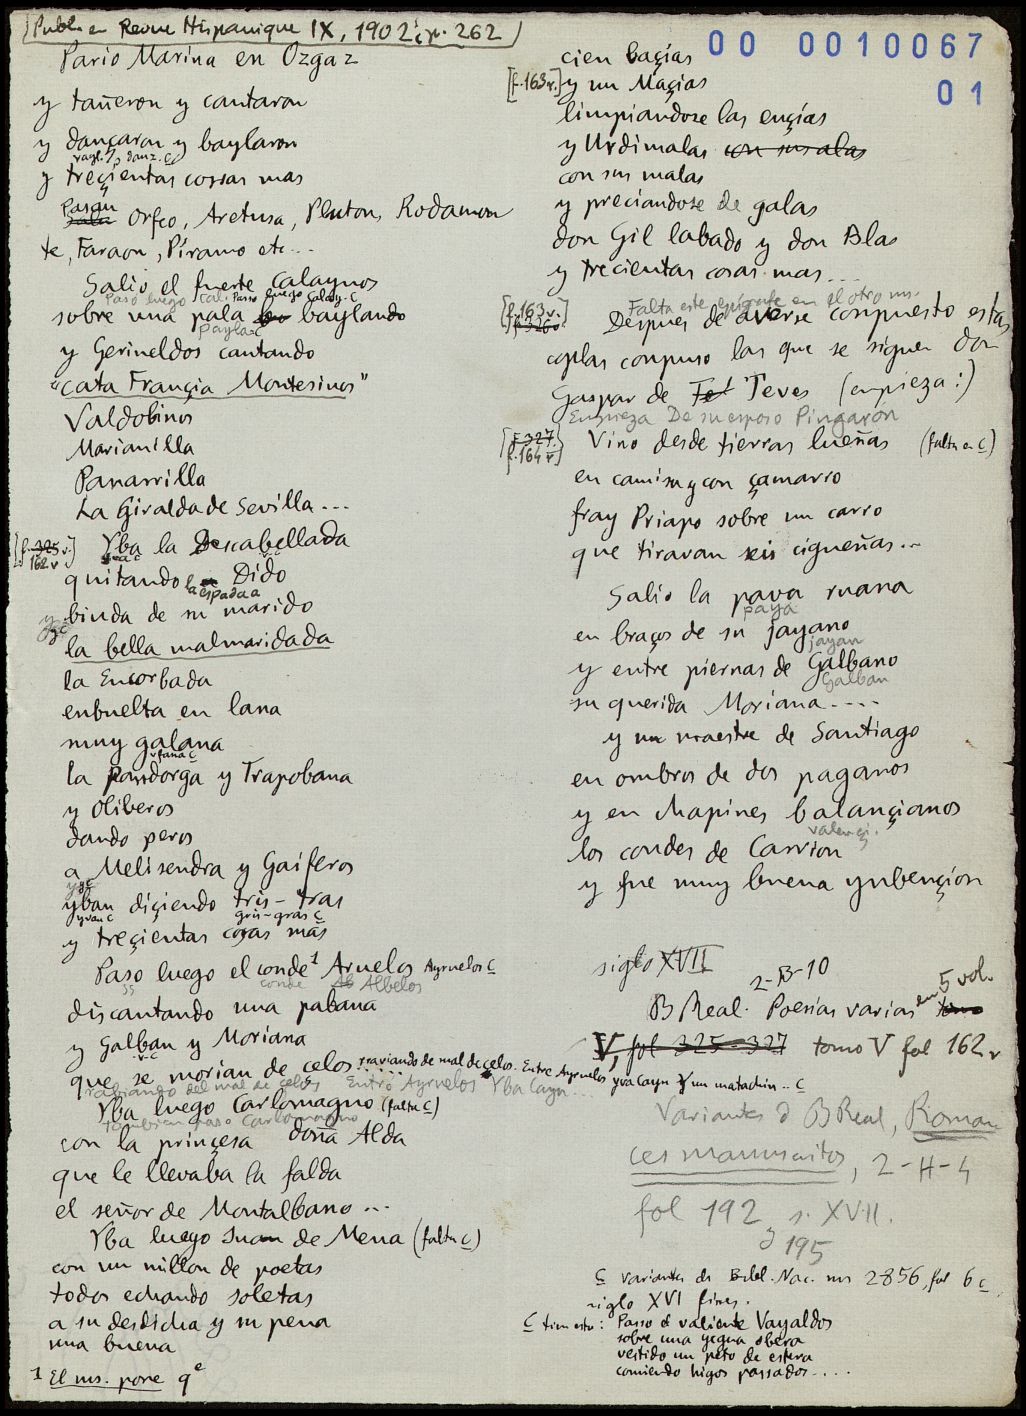 (Publ. en Revue Hispanique IX, 1902, p. 262)
Pario Marina en Ozgaz
y tañeron y cantaron
y dançaron y baylaron
vayl. y danz. C
y treçientas cossas mas
Pasan
Orfeo, Aretusa, Pluton, Rodamon
te, Faraon, Piramo etc...
Salio el fuerte Calaynos
Paso luego Cal. Passo luego Calay. C
sobre una pala baylando
y Gerineldos cantando
"cata Françia Montesinos"
Valdobinos
Marianilla
Panarrilla
La Giralda de Sevilla...
[f. 325 v.] Yba la Descabellada
162 v
quitando la Dido
la espada a
y biuda de su marido
la bella malmaridada
la Encorbada
enbuelta en lana
muy galana
ufana C
la Pandorga y Trapobana
y Oliberos
dando peros
a Melisendra y Gaiferos
yban diçiendo tris-tras
yvan C gris-gras C
y treçientas cosas más
Paso luego el conde¹ Arnuelos Ayruelos C
conde Albelos
discantando una pabana
y Galban y Moriana
que se morian de celos rraviando de mal de çelos. Entre Ayruelos yva Cayn y un matachin.. C
rabiando del mal de celos Entró Ayruelos Yba Cayn...
Yba luego Carlomagno (falta C)
Tambien paso Carlomagno
con la prinçesa doña Alda
que le llevaba la falda
el señor de Montalbano...
Yba luego Juan de Mena (falta C)
con un millon de poetas
todos echando soletas
a su desdicha y su pena
una buena
1 El ms. pone qe
cien baçias
00 0010067
01
[f. 163 r.] y un Maçias
limpiandose las ençias
y Urdimalas con sus alas
con sus malas
y preciandose de galas
don Gil labado y don Blas
y trecientas cosas mas...
Falta este epígrafe en el otro ms.
[f. 163 v.] Despues de averse conpuesto estas
f. 326 v.
coplas conpuso las que se siguen don
Gaspar de Teves (empieza:)
Empieza De su esposo Pingarón
[f. 327. Vino desde tierras lueñas (falta en C)
f. 164 r]
en camisa y con çamarro
fray Priapo sobre un carro
que tiravan seis cigueñas...
Salio la pava ruana
paya
en braços de su jayano
jayan
y entre piernas de Galbano
Galban
su querida Moriana....
y un maestre de Santiago
en ombros de dos paganos
y en chapines balançianos
valençi.
los condes de Carrion
y fue muy buena ynbençion
siglo XVII
2-B-10
B Real. Poesias varias en 5 vol.
V, fol 325-327 tomo V fol 162 v
Variantes d B Real, Roman
ces manuscritos, 2-H-4
fol 192 s. XVII.
y 195
C variantes de Bibl. Nac. ms 2856, fol 6
siglo XVI fines.
Passo el valiente Vayaldos
sobre una yegua obera
vestido un peto de estera
comiendo higos passados....